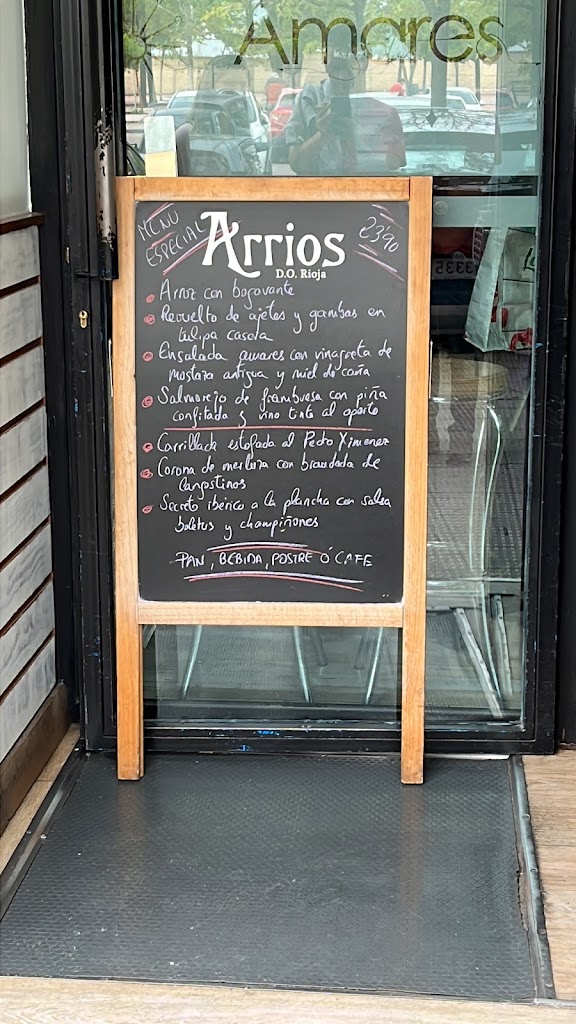 Amares
MENU
ESPECIAL
Arrios
D.O. Rioja
23'90
Arroz con bogavante
Revuelto de ajetes y gambas en
tulipa casera
Ensalada amares con vinagreta de
mostaza antigua y miel de caña
Salmorejo de frambuesa con piña
confitada y vino tinto al oporto
Carrillada estofada al Pedro Ximenez
Corona de merluza con brandada de
langostinos
Secreto ibérico a la plancha con salsa
boletus y champiñones
PAN, BEBIDA, POSTRE Ó CAFE